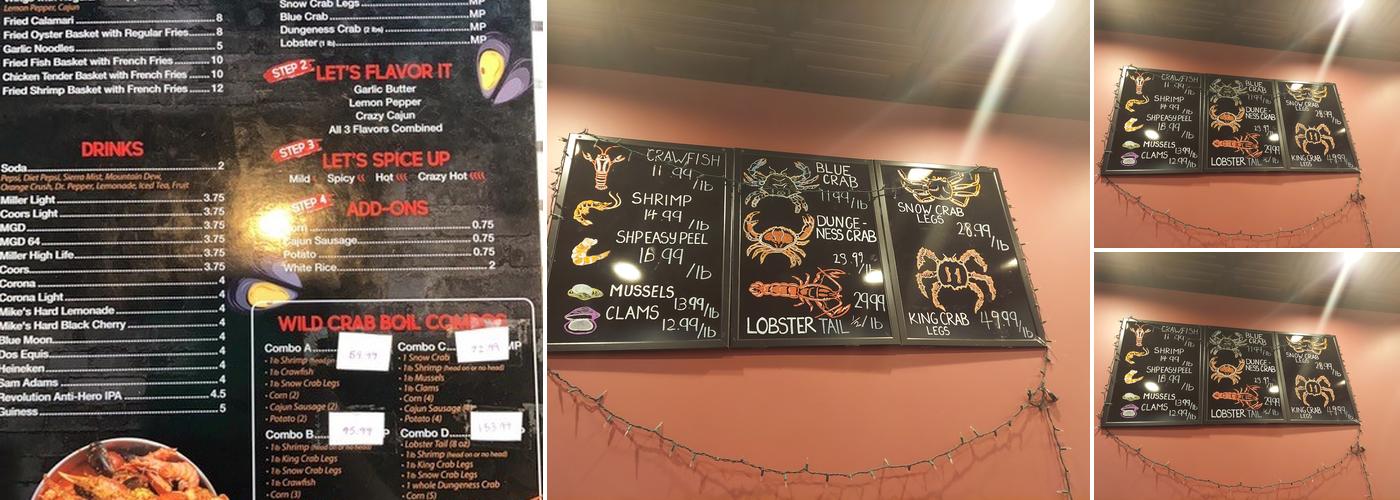 Lemon Pepper, Cajun
Fried Calamari 8
Fried Oyster Basket with Regular Fries 8
Garlic Noodles 5
Fried Fish Basket with French Fries 10
Chicken Tender Basket with French Fries 10
Fried Shrimp Basket with French Fries 12
DRINKS
Soda 2
Pepsi, Diet Pepsi, Sierra Mist, Mountain Dew,
Orange Crush, Dr. Pepper, Lemonade, Iced Tea, Fruit
Miller Light 3.75
Coors Light 3.75
MGD 3.75
MGD 64 3.75
Miller High Life 3.75
Coors 3.75
Corona 4
Corona Light 4
Mike's Hard Lemonade 4
Mike's Hard Black Cherry 4
Blue Moon 4
Dos Equis 4
Heineken 4
Sam Adams 4
Revolution Anti-Hero IPA 4.5
Guiness 5
Snow Crab Legs MP
Blue Crab MP
Dungeness Crab (2 lbs) MP
Lobster (1 lb) MP
STEP 2
LET'S FLAVOR IT
Garlic Butter
Lemon Pepper
Crazy Cajun
All 3 Flavors Combined
STEP 3
LET'S SPICE UP
Mild Spicy Hot Crazy Hot
STEP 4
ADD-ONS
Corn 0.75
Cajun Sausage 0.75
Potato 0.75
White Rice 2
WILD CRAB BOIL COMBOS
Combo A 59.99
• 1lb Shrimp
• 1lb Crawfish
• 1lb Snow Crab Legs
• Corn (2)
• Cajun Sausage (2)
• Potato (2)
Combo B 95.99
• 1lb Shrimp (head on or no head)
• 1lb King Crab Legs
• 1lb Snow Crab Legs
• 1lb Crawfish
• Corn (3)
Combo C 92.99 MP
• 1 Snow Crab
• 1lb Shrimp (head on or no head)
• 1lb Mussels
• 1lb Clams
• Corn (4)
• Cajun Sausage
• Potato (4)
Combo D 153.99
• Lobster Tail (8 oz)
• 1lb Shrimp (head on or no head)
• 1lb King Crab Legs
• 1lb Snow Crab Legs
• 1 whole Dungeness Crab
• Corn (5)
CRAWFISH
11.99/lb
SHRIMP
14.99
/lb
SHP EASY PEEL
18.99
/lb
MUSSELS
13.99/lb
CLAMS
12.99/lb
BLUE
CRAB
11.99/lb
DUNGE-
NESS CRAB
29.99
/lb
29.99
LOBSTER TAIL
SNOW CRAB
LEGS
28.99/lb
KING CRAB 49.99/lb
LEGS
CRAWFISH
11.99/lb
SHRIMP
14.99
/lb
SHP EASY PEEL
18.99
/lb
MUSSELS
13.99/lb
CLAMS
12.99/lb
BLUE
CRAB
11.99/lb
DUNGE-
NESS CRAB
29.99
29.99
LOBSTER TAIL
SNOW CRAB
LEGS
28.99/lb
KING CRAB 49.99/lb
LEGS
CRAWFISH
11.99/lb
SHRIMP
14.99
/lb
SHP EASY PEEL
18.99
/lb
MUSSELS
13.99/lb
CLAMS
12.99/lb
BLUE
CRAB
11.99/lb
DUNGE-
NESS CRAB
29.99
29.99
LOBSTER TAIL
SNOW CRAB
LEGS
28.99/lb
KING CRAB 49.99/lb
LEGS